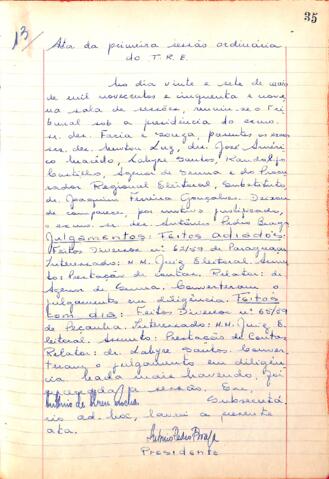 35
13
Ata da primeira sessão ordinária
do T.R.E.
No dia vinte e sete de maio
de mil novecentos e cinquenta e nove,
na sala de sessões, reuniu-se o Tri-
bunal sob a presidência do exmo.
sr. des. Faria e Souza, presentes os exmos
srs. des. Newton Luz, drs. José Améri-
co Macêdo, Labyre Santos, Randolfo
Castillo, Agenor de Senna e do Procu-
rador Regional Eleitoral, Substituto,
dr. Joaquim Ferreira Gonçalves. Deixou
de comparecer, por motivo justificado,
o exmo. sr. des. Antônio Pedro Braga
Julgamentos: Feitos adiados:
Feitos Diversos nº 62/59 de Paraguaçu
Interessado: M.M. Juiz Eleitoral. Assun-
to: Prestação de Contas. Relator: dr.
Agenor de Senna. Converteram o
julgamento em diligência. Feitos
com dia: Feitos Diversos nº 65/59
de Peçanha. Interessado: M.M. Juiz E-
leitoral. Assunto: Prestação de Contas
Relator: dr. Labyre Santos. Conver-
teram o julgamento em diligên-
cia. Nada mais havendo, foi
encerrada a sessão. Eu,
Antônio de Abreu Rocha, Subsecretá-
rio ad-hoc, lavrei a presente
ata.
Antônio Pedro Braga
Presidente